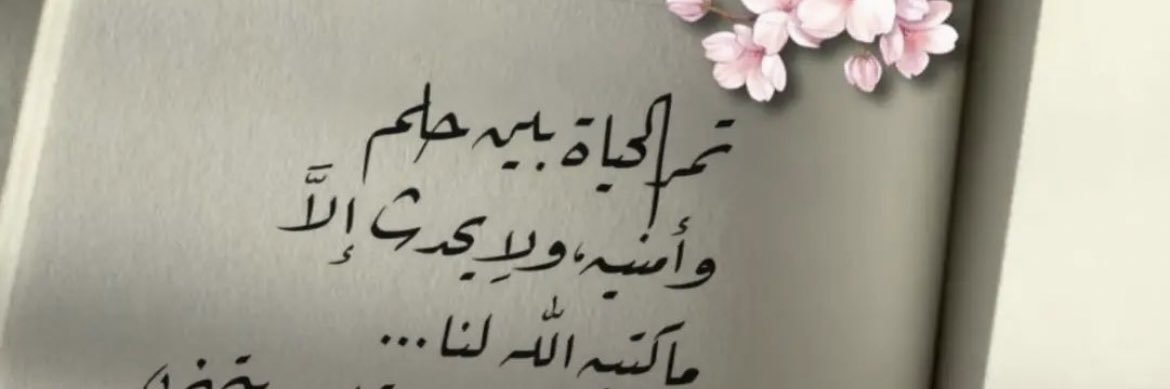 تمر الحياة بين حلم
وأمنيه، ولا يحدث إلاَّ
ماكتبه الله لنا...